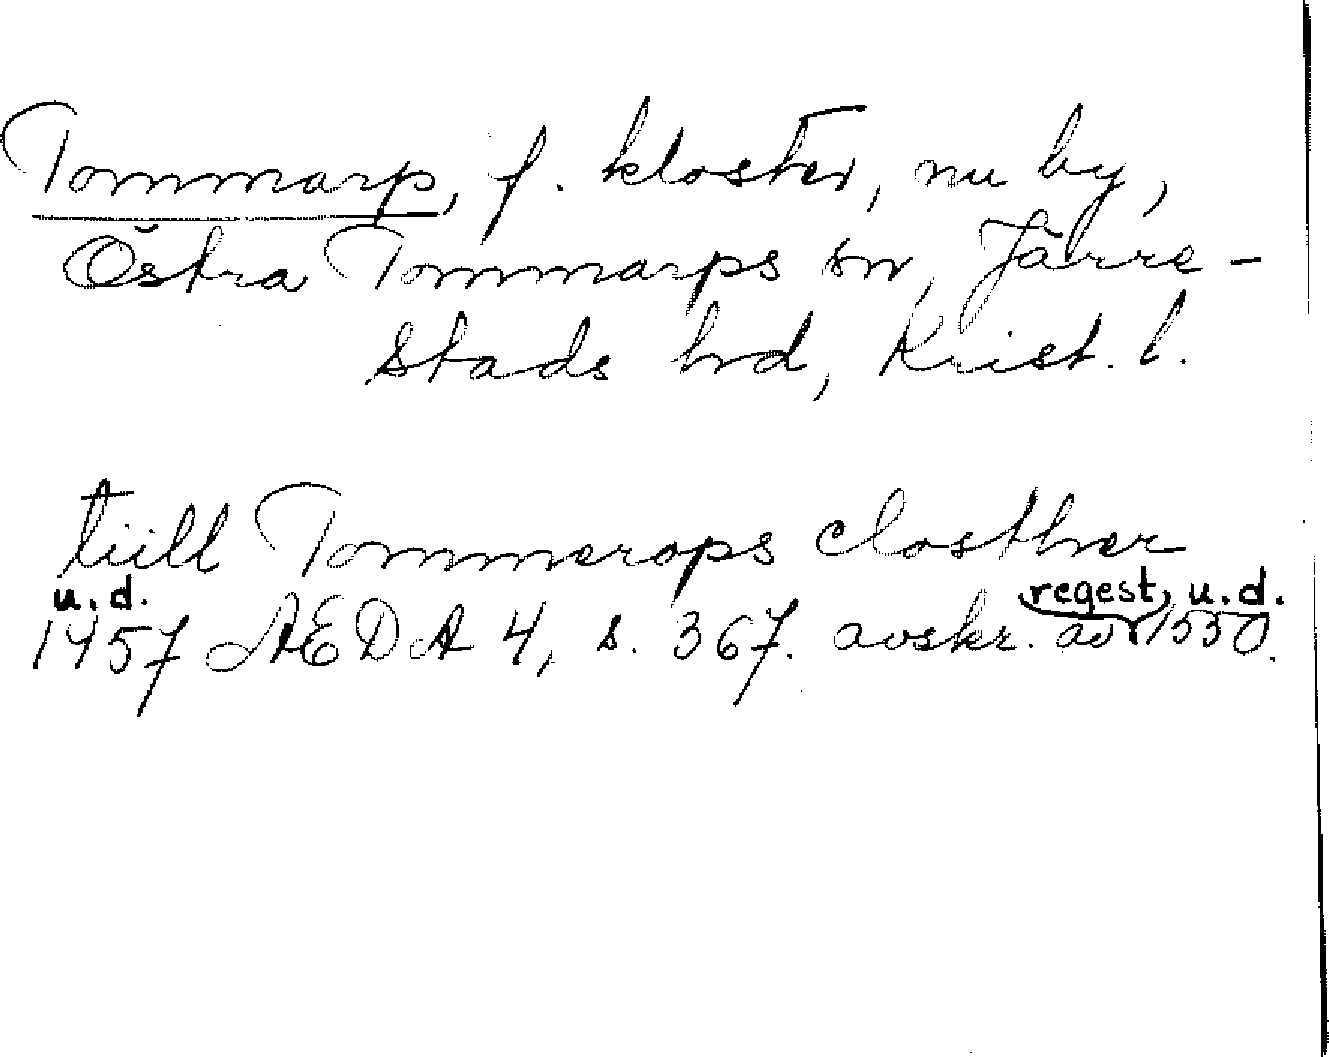 Tommarp, f. kloster, nu by,
Östra Tommarps sn, Järre-
stads hd, Krist. l.
tiill Tommerops closther
u. d. regest, u. d.
1457 AEDA 4, s. 367. avskr. av 1550.